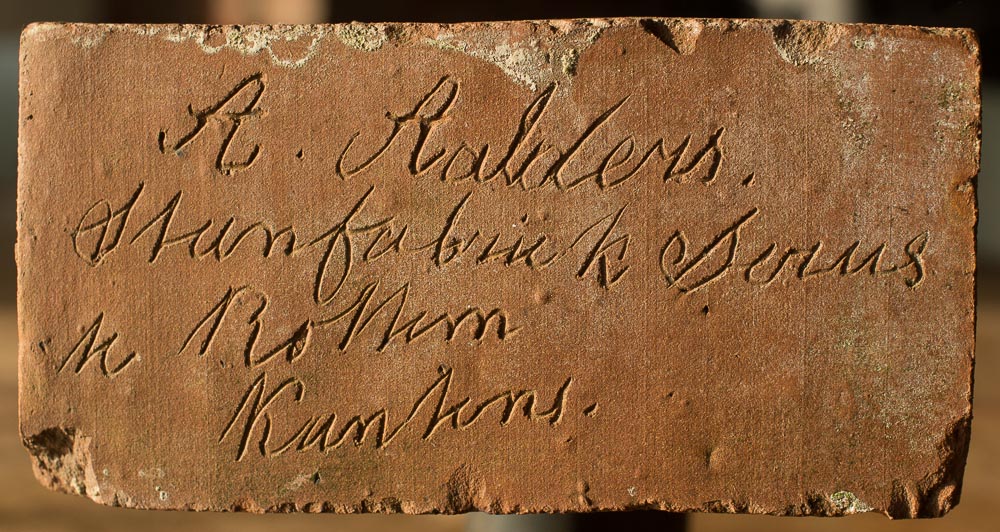 A. Aalders.
Stienfabriek Serus
te Rottem
Kantens.